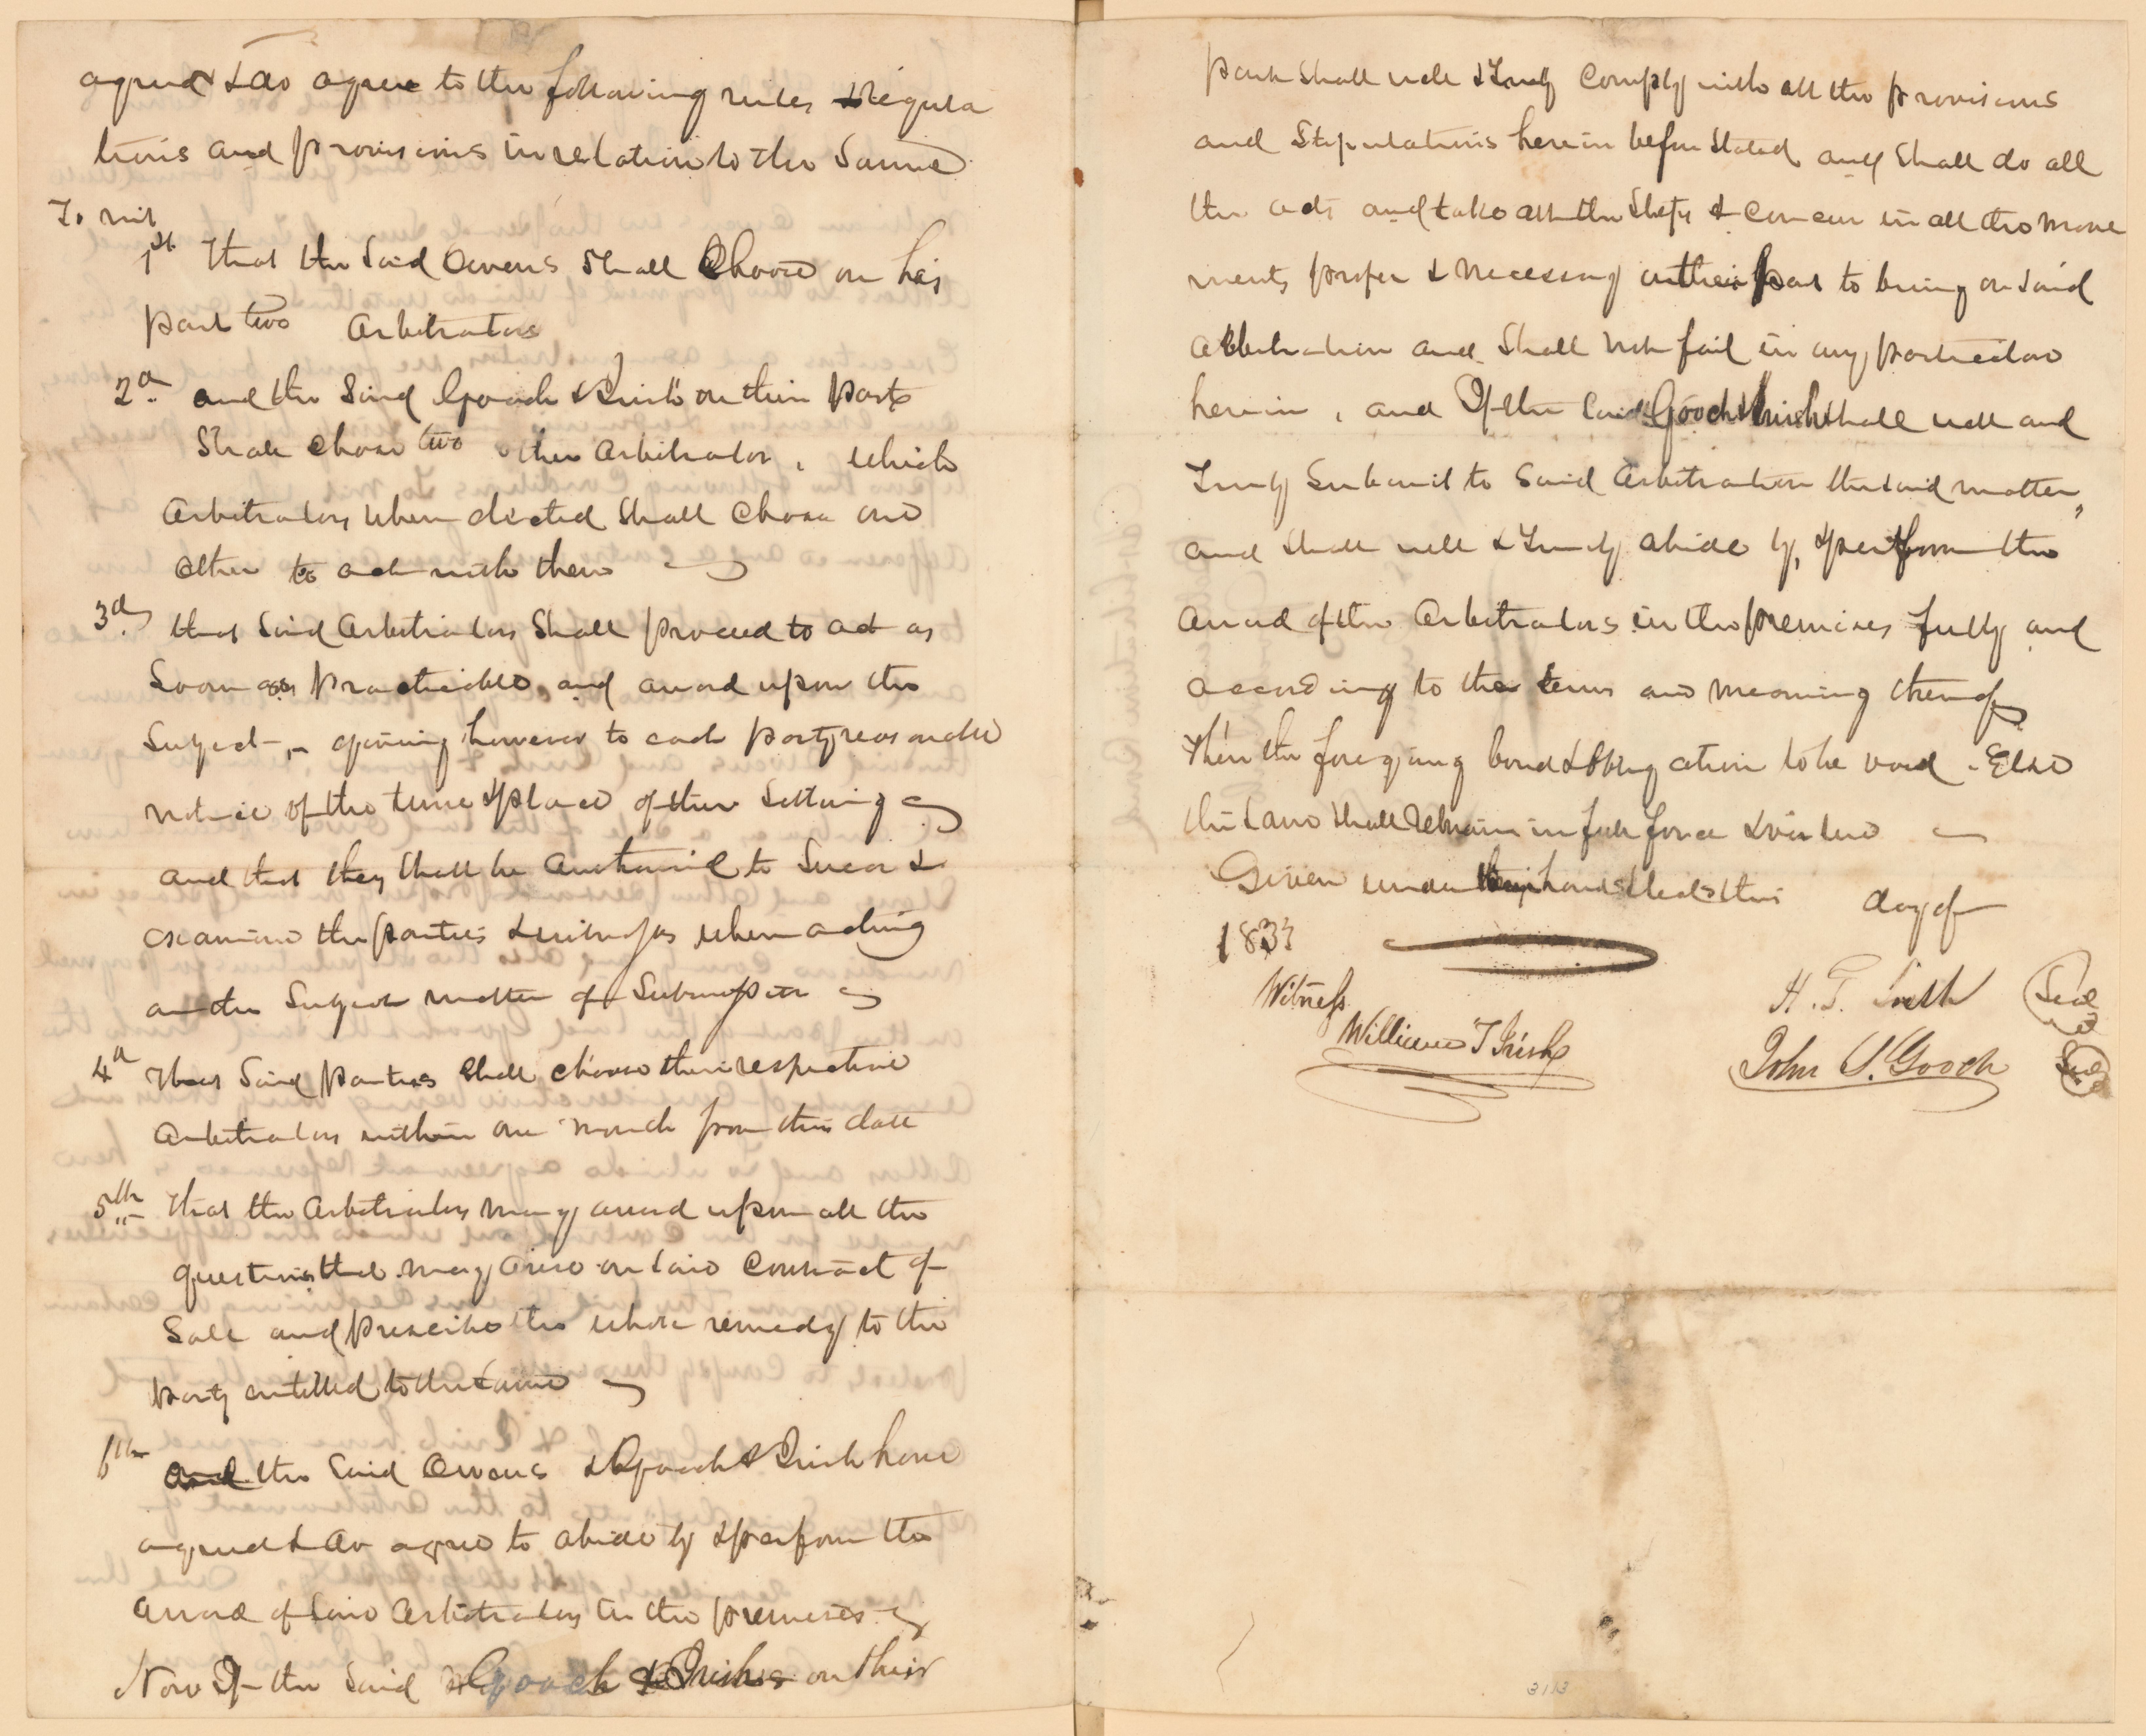 agreed & do agree to the following rules & regula
tions and provisions in relation to the Same
To wit
1st That the Said Owens Shall Choose on his
part two Arbitrators
2d and the Said Gooch & Irish on their part
Shall chose two other Arbitrators, which
Arbitrators when elected Shall Chose one
other to act with them
3d that Said Arbitrators Shall proceed to act as
Soon as Practicable, and award upon the
Subject, giving however to each party reasonable
notice of the time & place of their Setting
and that they Shall be Authorised to Swear &
examine the parties & witnesses when acting
on the Subject matter of Submission
4th That Said parties Shall choose their respective
Arbitrators within one month from this date
5th That the Arbitrators may award upon all the
questions that may arise on Said Contract of
Sale and prescribe the whole remedy to the
party entitled to the Same
6th and the Said Owens & Gooch & Irish have
agreed & do agree to abide by & perform the
award of Said Arbitrators in the premises
Now If the Said Gooch & Irish on their
part Shall well & Truly Comply with all the provisions
and Stipulations herein before Stated and Shall do all
the acts and take all the Steps & concur in all the move
ments proper & necessary on their part to bring on Said
arbitration and Shall not fail in any particular
herein, and If the Said Gooch & Irish Shall well and
Truly Submit to Said Arbitration the Said matter,
and Shall well & Truly abide by, & perform the
award of the Arbitrators in the premises fully and
according to the terms and meaning thereof
Then the foregoing bond & Obligation to be void - Else
the Same Shall Remain in full force & virtue
Given under their hands & Seals this day of
1833
Witness H. T. Seal
William T Irish John S. Gooch Seal
3113